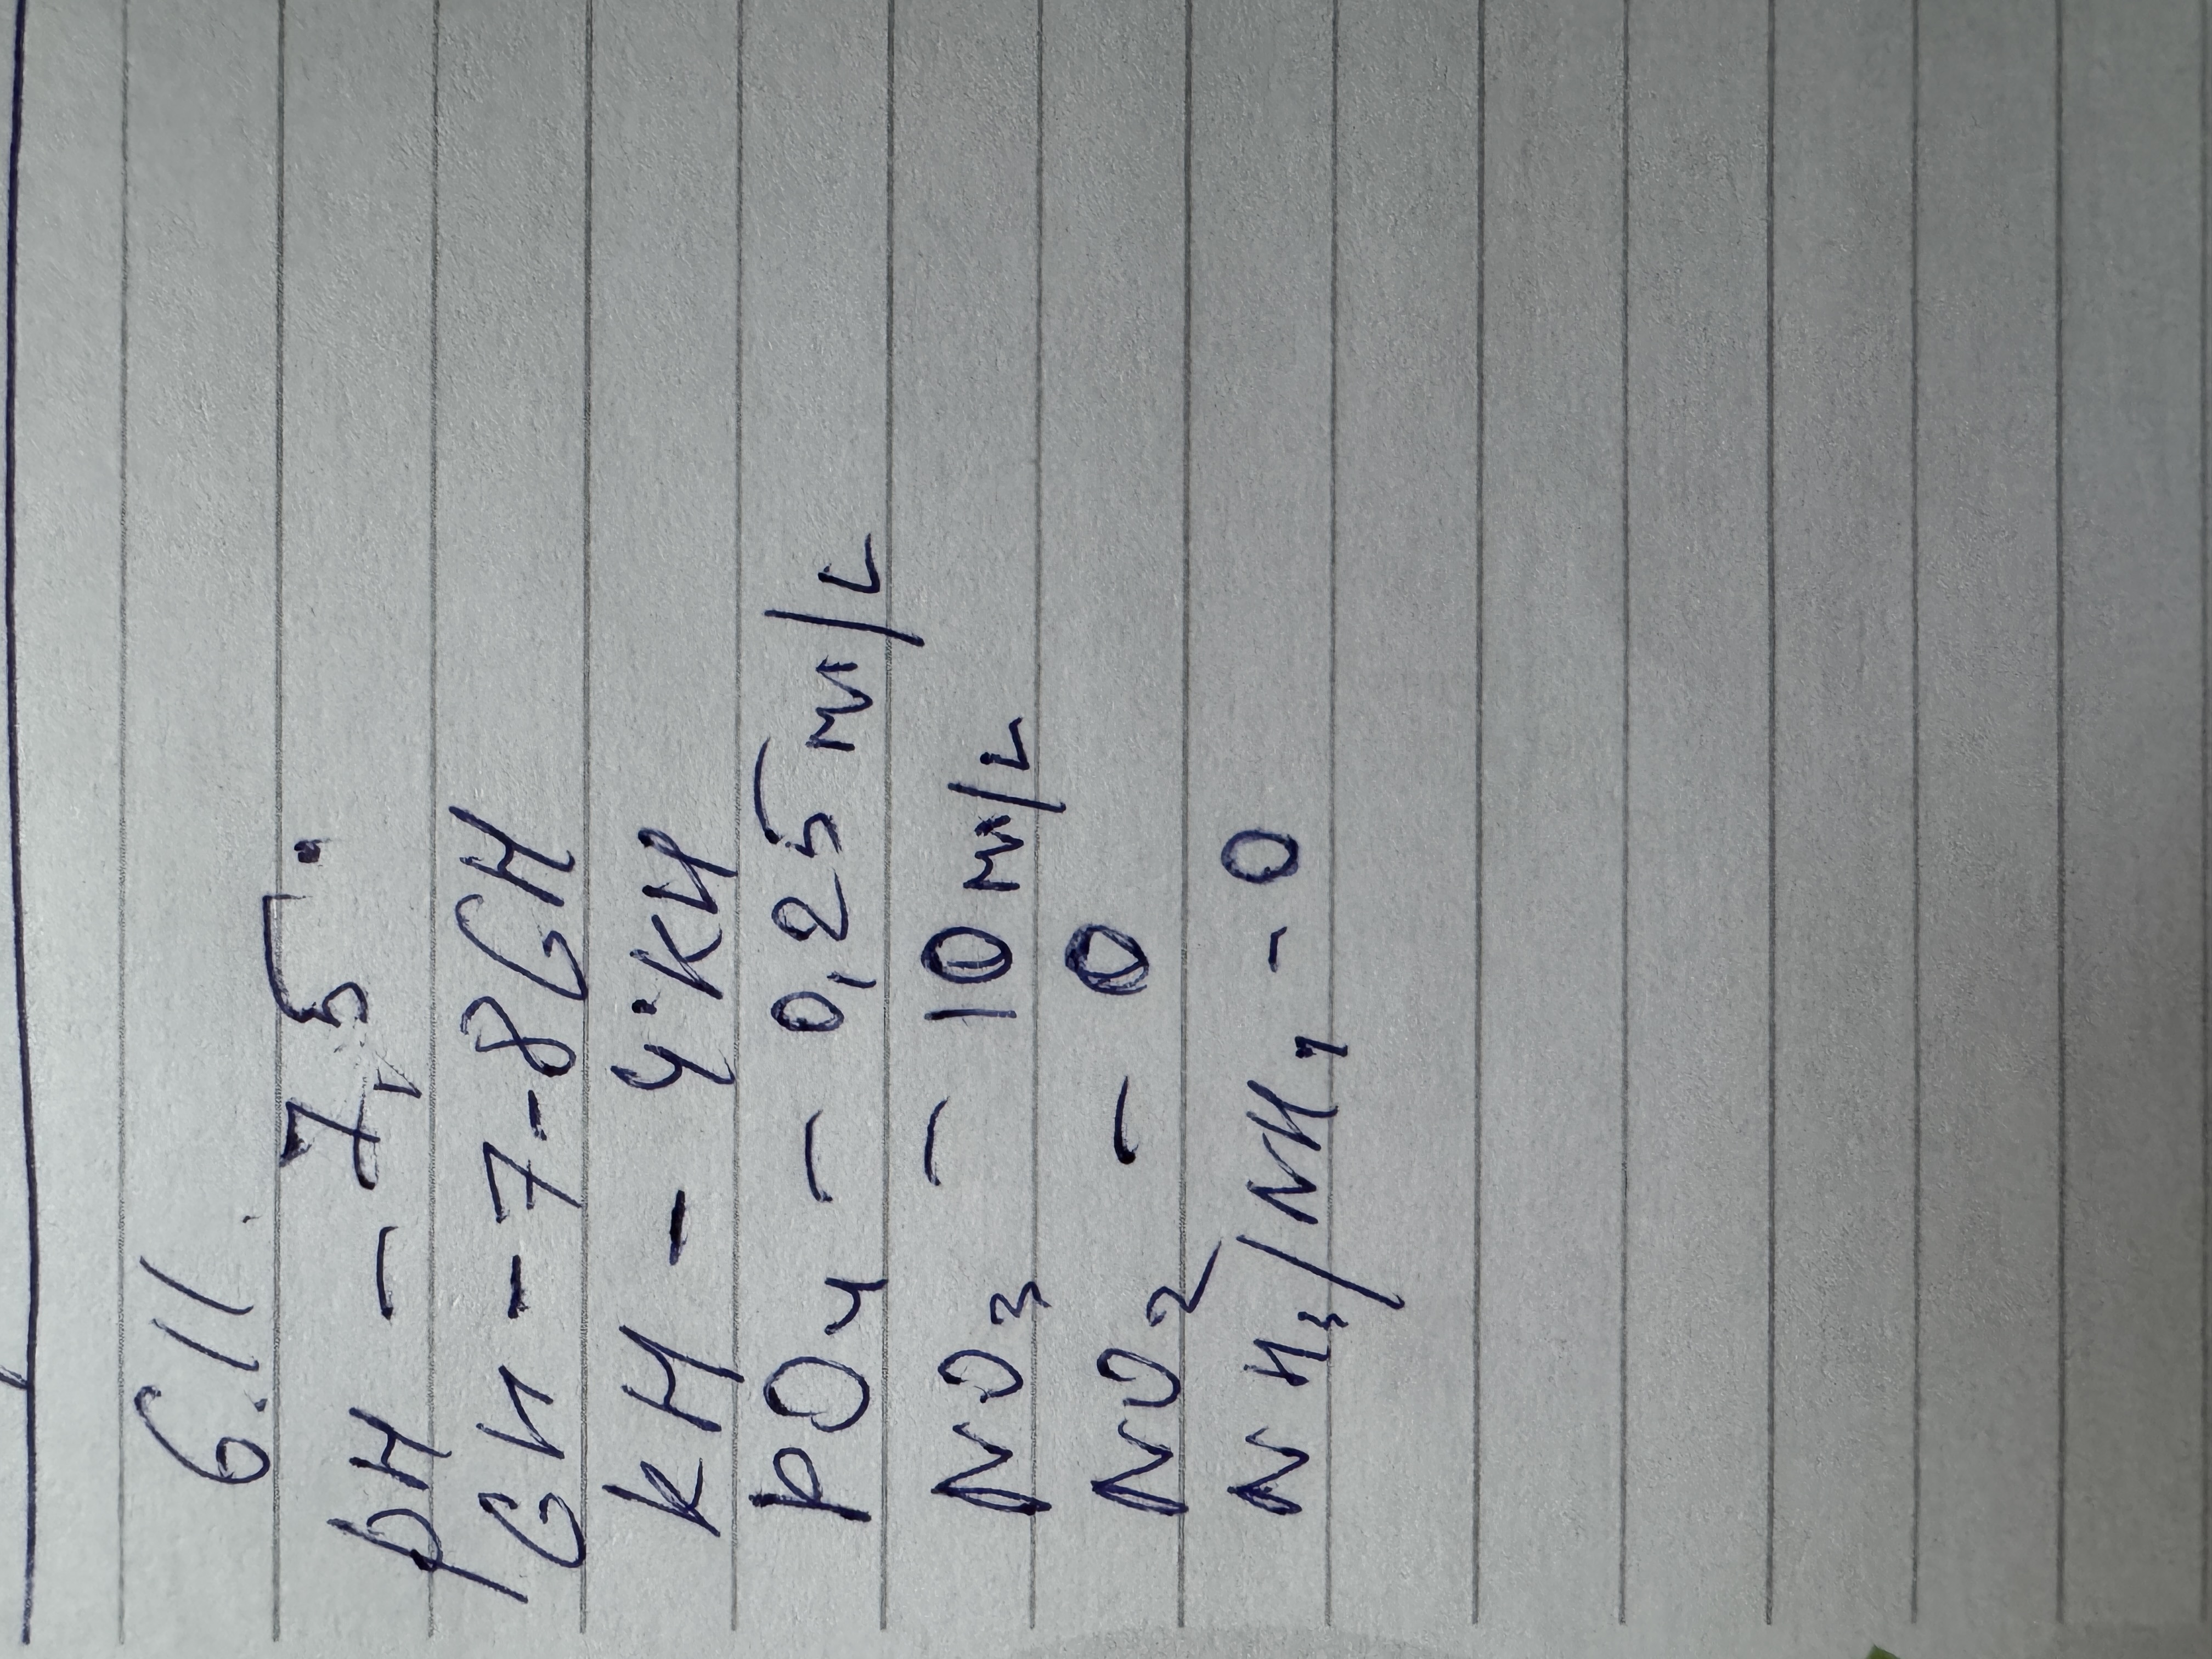 6.11.
pH - 7,5
GH - 7-8 GH
KH - 4 KH
PO4 - 0,25 ml/L
NO3 - 10 ml/L
NO2 - 0
NH3/NH4 - 0